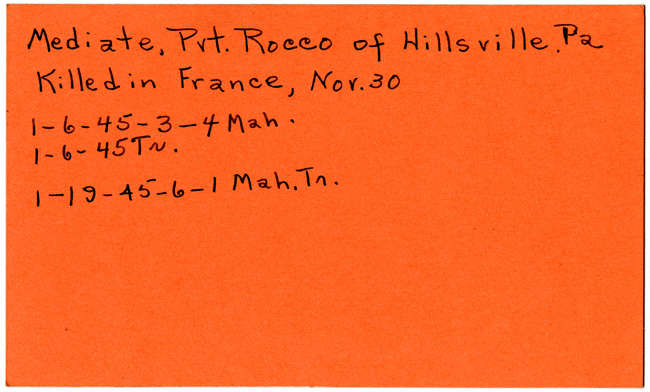 Mediate, Pvt. Rocco of Hillsville, Pa
Killed in France, Nov. 30
1-6-45-3-4 Mah.
1-6-45 Tn.
1-19-45-6-1 Mah. Tn.